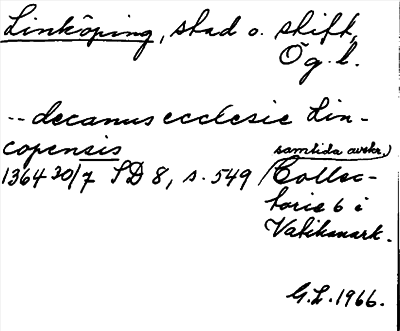 Linköping, stad o. stift,
Ög. l.
-- decanus ecclesie Lin-
copensis
1364 30/7 SD 8, s. 549 (Collec-
samtida avskr.)
torie 6 i
Vatikanark.
G.L. 1966.